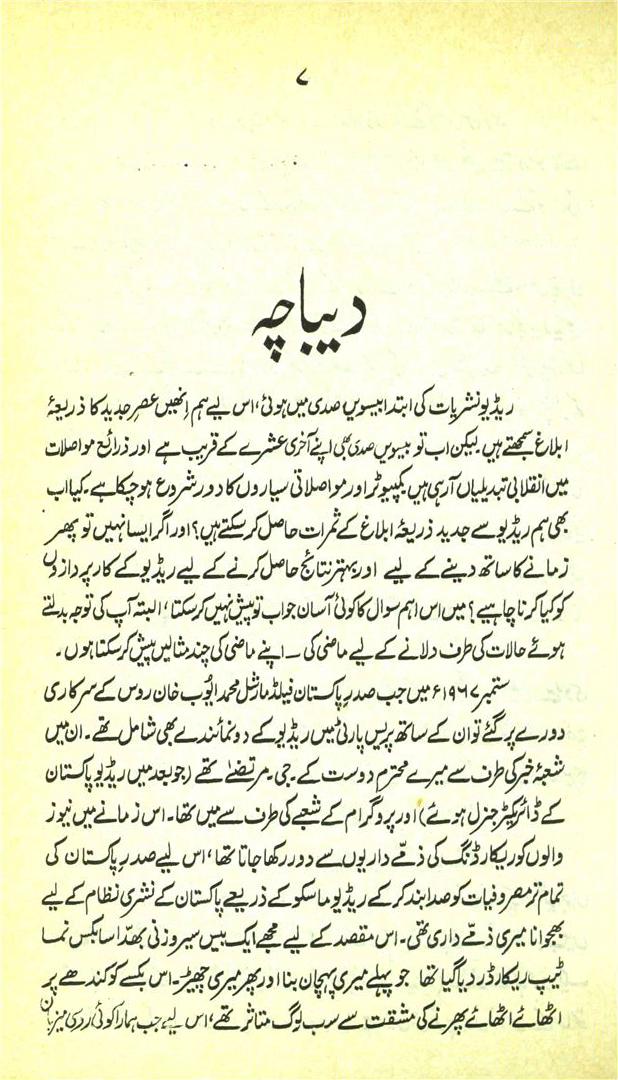 ۷
دیباچہ
ریڈیو نشریات کی ابتدا بیسویں صدی میں ہوئی، اس لیے ہم انھیں عصرِ جدید کا ذریعۂ
ابلاغ سمجھتے ہیں۔ لیکن اب تو بیسویں صدی بھی اپنے آخری عشرے کے قریب ہے اور ذرائع مواصلات
میں انقلابی تبدیلیاں آ رہی ہیں۔ کمپیوٹر اور مواصلاتی سیاروں کا دور شروع ہو چکا ہے۔ کیا اب
بھی ہم ریڈیو سے جدید ذریعۂ ابلاغ کے ثمرات حاصل کر سکتے ہیں؟ اور اگر ایسا نہیں تو پھر
زمانے کا ساتھ دینے کے لیے اور بہتر نتائج حاصل کرنے کے لیے ریڈیو کے کارپردازوں
کو کیا کرنا چاہیے؟ میں اس اہم سوال کا کوئی آسان جواب تو پیش نہیں کر سکتا، البتہ آپ کی توجہ بدلتے
ہوئے حالات کی طرف دلانے کے لیے ماضی کی – اپنے ماضی کی چند مثالیں پیش کر سکتا ہوں۔
ستمبر ۱۹۶۷ء میں جب صدرِ پاکستان فیلڈ مارشل محمد ایوب خان روس کے سرکاری
دورے پر گئے تو ان کے ساتھ پریس پارٹی میں ریڈیو کے دو نمائندے بھی شامل تھے۔ ان میں
شعبۂ خبر کی طرف سے میرے محترم دوست کے۔ جی۔ مرتضےٰ تھے (جو بعد میں ریڈیو پاکستان
کے ڈائریکٹر جنرل ہوئے) اور پروگرام کے شعبے کی طرف سے میں تھا۔ اس زمانے میں نیوز
والوں کو ریکارڈنگ کی ذمے داریوں سے دور رکھا جاتا تھا، اس لیے صدرِ پاکستان کی
تمام تر مصروفیات کو صدا بند کر کے ریڈیو ماسکو کے ذریعے پاکستان کے نشری نظام کے لیے
بھجوانا میری ذمے داری تھی۔ اس مقصد کے لیے مجھے ایک بیس سیر وزنی بھدا سا بکس نما
ٹیپ ریکارڈر دیا گیا تھا جو پہلے میری پہچان بنا اور پھر میری چھیڑ۔ اس بکسے کو کندھے پر
اٹھائے اٹھائے پھرنے کی مشقت سے سب لوگ متاثر تھے، اس لیے جب ہمارا کوئی روسی میزبان